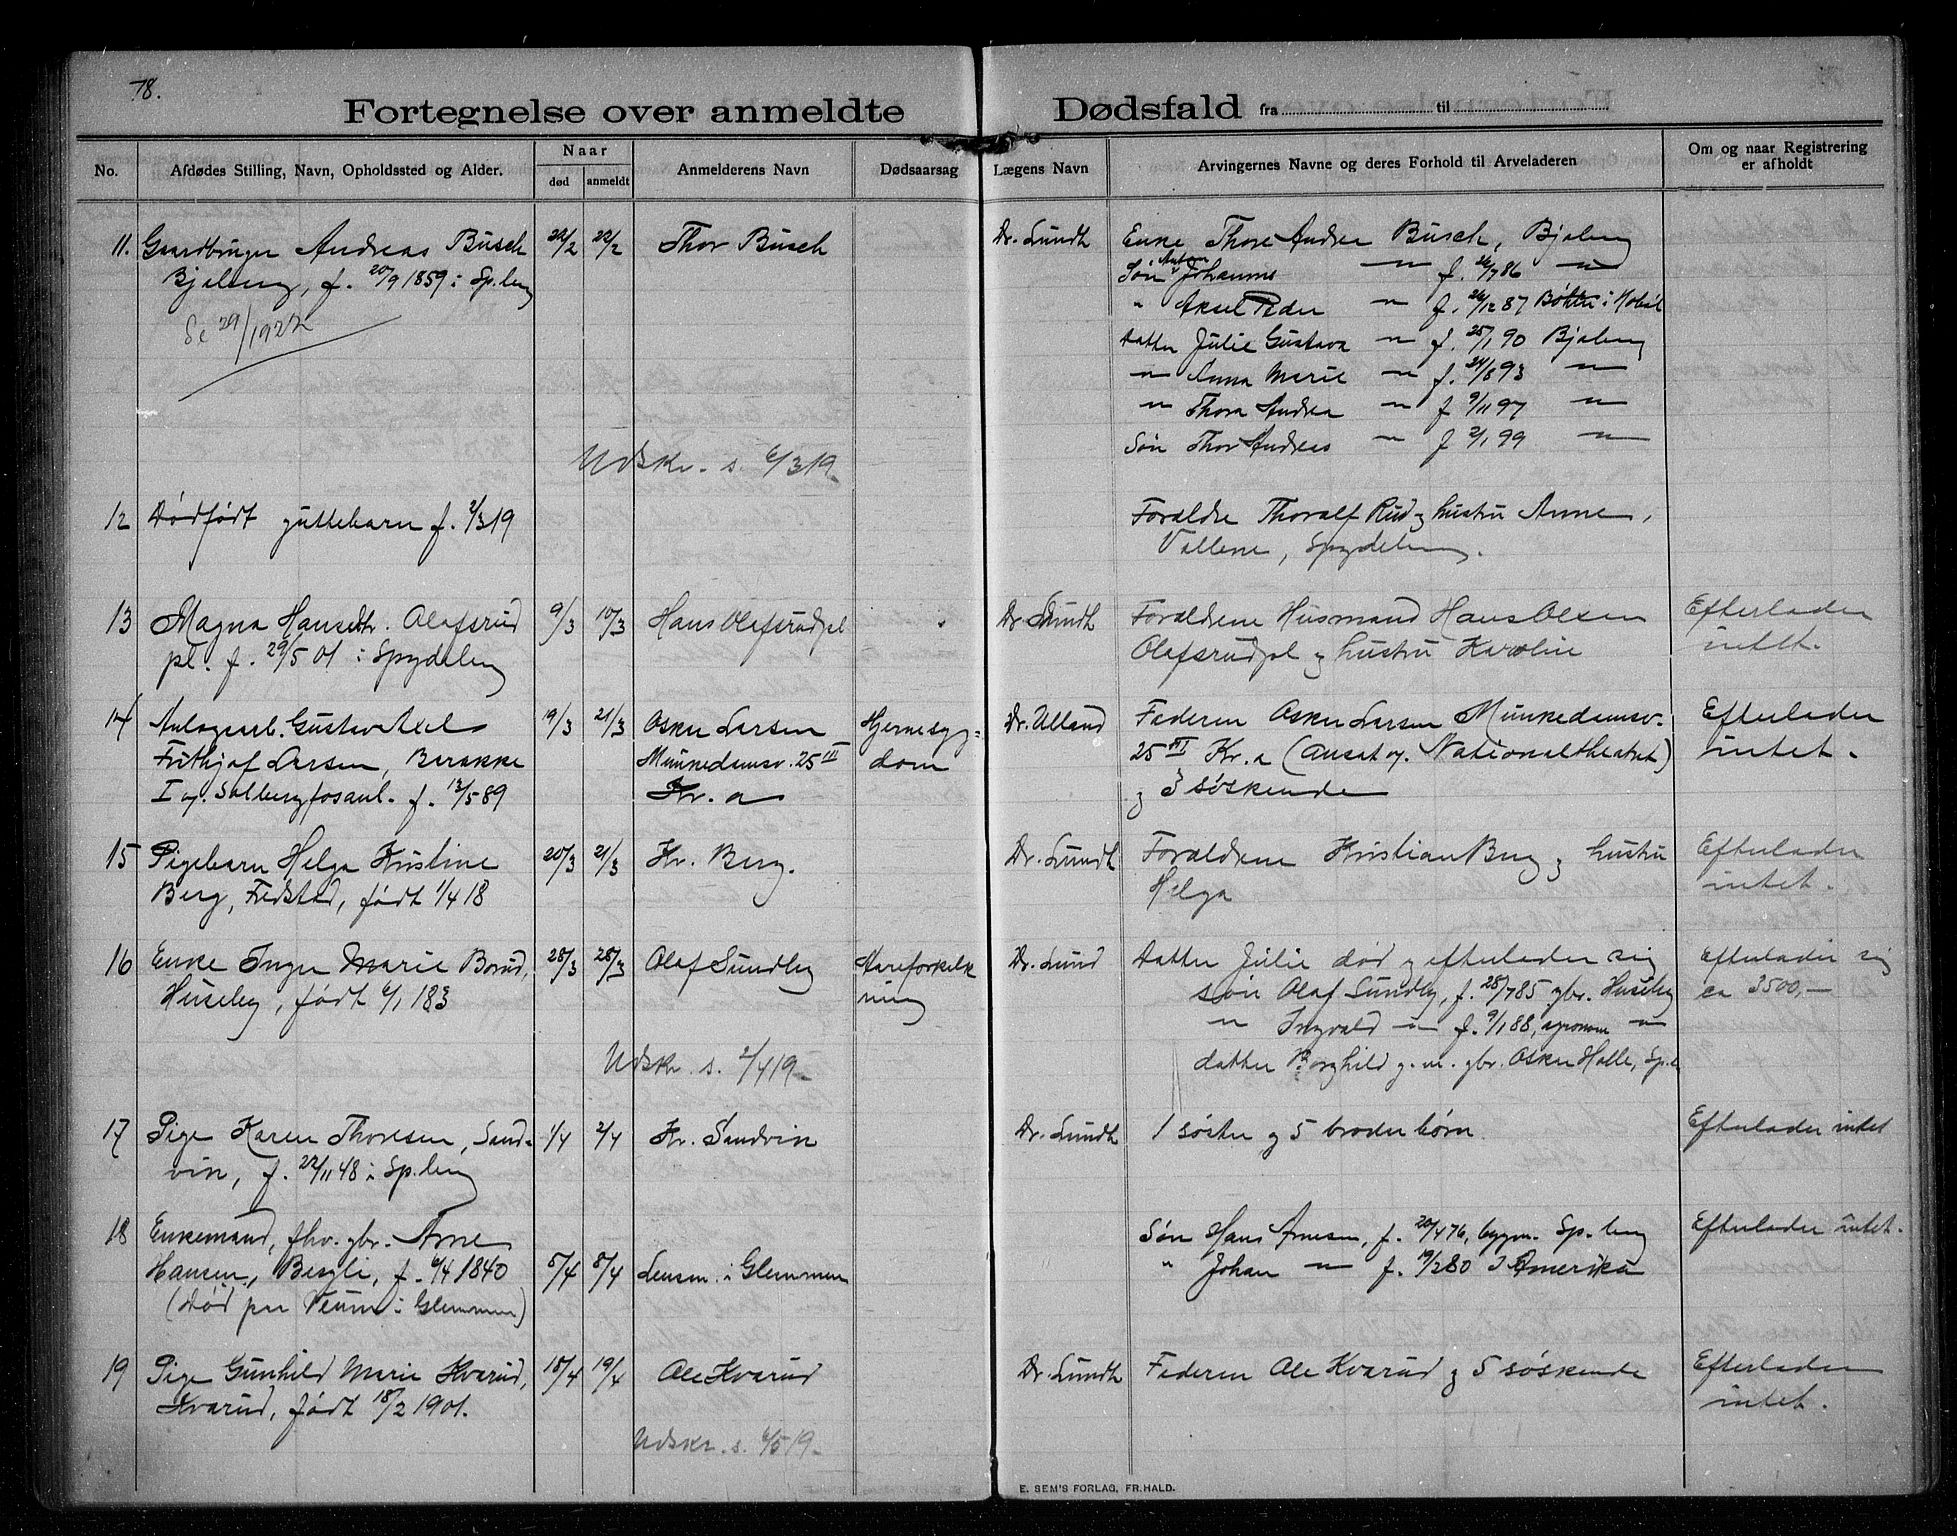 78.
Fortegnelse over anmeldte Dødsfald fra til
No. Afdødes Stilling, Navn, Opholdssted og Alder. Naar død anmeldt Anmelderens Navn Dødsaarsag Lægens Navn Arvingernes Navne og deres Forhold til Arveladeren Om og naar Registrering er afholdt
11. Gaardbruger Andreas Busch 22/2 22/2 Thor Busch Dr. Lundh Enke Thora Andrea Busch, Bjaberg
Bjaberg, f. 20/9 1859 i Sp.berg Søn Anton Johannes — f. 26/7 86 —
Se 29/1922 " Axel Peder — f. 26/12 87 Bøkter i Hobøl
Datter Julie Gustava — f. 25/1 90 Bjaberg
— Anna Marie — f. 24/8 93 —
— Thora Andrea — f 9/11 97 —
Søn Thor Andreas — f 2/1 99 —
Udskr. s. 6/3 19
12 Dødfødt guttebarn f. 2/3 19 Forældre Thoralf Rud og hustru Anne,
Vallene, Spydeberg.
13 Magna Hansdtr. Olafsrud 9/3 10/3 Hans Olafsrudpl Dr. Lundh Forældrene Husmand Hans Olsen Efterlader
pl. f. 29/5 01 i Spydeberg Olafsrudpl og hustru Karoline intet.
14 Anlægsarb. Gustav Axel 19/3 21/3 Oskar Larsen Hjernesyg= Dr. Ulland Faderen Oskar Larsen Munkedamsv. Efterlader
Frithjof Larsen, Barakke Munkedamsv. 25 III dom 25 III Kr.a (Ansat v. Nationaltheatret) intet.
I v. Solbergfosanl. f. 12/5 89 Kr.a og 3 søskende
15 Pigebarn Helga Kristine 20/3 21/3 Kr. Berg. Dr. Lundh Forældrene Kristian Berg og hustru Efterlader
Berg, Fedstad, født 1/4 18 Helga intet.
16 Enke Inger Marie Borud, 28/3 28/3 Olaf Sundby Aareforkalk Dr. Lund Datter Julie død og efterlader sig Efterlader sig
Huseby, født 6/1 183 ning søn Olaf Sundby, f. 28/7 85 gbr. Huseby ca 3500,—
— Ingvald — f. 9/1 88, agronom —
Udskr. s. 2/4 19 datter Borghild g. m. gbr. Oskar Halle, Sp.b
17 Pige Karen Thoresen, Sand= 1/4 2/4 Kr. Sandvin Dr. Lundh 1 søster og 5 broderbørn. Efterlader intet
vin, f. 22/11 48 i Sp.berg
18 Enkemand, fhv. gbr. Arne Søn Hans Arnesen, f. 20/4 76, bygm. Sp.berg Efterlader intet.
Hansen, Bergli, f. 6/4 1840 5/4 8/4 Lensm. i Glemmen " Johan — f. 19/2 80 I Amerika
(Død paa Veum i Glemmen)
19 Pige Gunhild Marie Kvarud, 18/4 19/4 Ole Kvarud Dr. Lundh Faderen Ole Kvarud og 5 søskende Efterlader
Kvarud, født 18/2 1901. intet.
Udskr. s. 6/5 19
E. SEM'S FORLAG, FR.HALD.